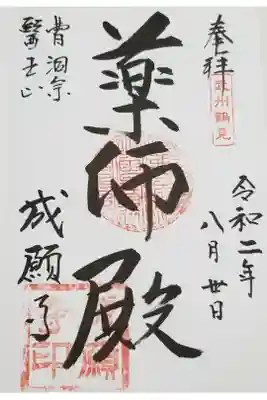 奉拝
武州鶴見
令和二年
八月 日
薬師殿
曹洞宗
醫王山
成願寺